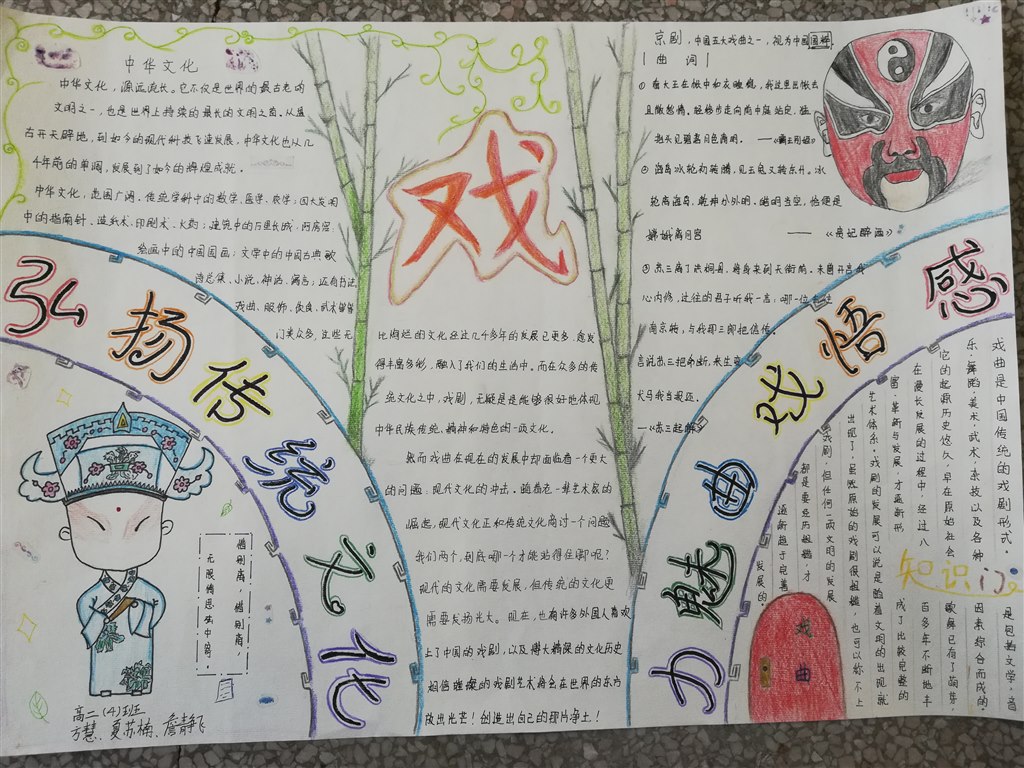 中华文化
中华文化，源远流长。它不仅是世界的最古老的
文明之一，也是世界上持续的最长的文明之一。从盘
古开天辟地，到如今的现代科教飞速发展，中华文化也从几
千年前的单调，发展到了如今的辉煌成就。
中华文化，范围广阔，传统学科中的数学、医学、农学；四大发明
中的指南针、造纸术、印刷术、火药；建筑中的万里长城、阿房宫、
绘画中的中国国画；文学中的中国古典歌
诗总集、小说、神话、寓言，还有书法
戏曲、服饰、饮食、武术等等
门类众多，这些无
比绚烂的文化经过几千多年的发展已更多，愈发
得丰富多彩，融入了我们的生活中。而在众多的传
统文化之中，戏剧，无疑是是能够很好地体现
中华民族传统、精神和特色的一项文化。
然而戏曲在现在的发展中却面临着一个更大
的问题：现代文化的冲击。随着老一辈艺术家的
崛起，现代文化正和传统文化商讨一个问题
我们两个，到底哪一个才能站得住脚呢？
现代的文化需要发展，但传统的文化更
需要发扬光大。现在，也有许多外国人喜欢
上了中国的戏剧，以及博大精深的文化历史
相信璀璨的戏剧艺术将会在世界的东方
放出光芒！创造出自己的那片净土！
戏
弘扬传统文化
惜别离，惜别离，
无限情思弦中寄。
高二（4）班
方慧、夏苏楠、詹静飞
京剧，中国五大戏曲之一，视为中国国粹。
曲词
① 看大王在帐中和衣睡稳，我这里出帐去
且散愁情。轻移步走向前中庭站定，猛
抬头见碧落月色清明。
② 海岛冰轮初转腾，见玉兔又转东升。冰
轮离海岛，乾坤分外明，皓月当空，恰便是
嫦娥离月宫 ——《贵妃醉酒》
③ 苏三离了洪桐县，将身来到大街前，未曾开言我
心内惨，过往的君子听我一言，哪一位去往
南京转，与我那三郎把信传，
言说苏三把命断，来生变
犬马我当报还。
——《苏三起解》
感悟戏曲魅力
知识门
戏曲是中国传统的戏剧形式。
是包含文学，音
乐，舞蹈，美术，武术，杂技以及各种
因素综合而成的。
它的起源历史悠久，早在原始社会
歌舞已有了萌芽，
在漫长发展的过程中，经过八
百多年不断地丰
富，革新与发展，才逐渐形
成了比较完整的
艺术体系。戏剧的发展可以说是随着文明的出现就
出现了，虽然原始的戏剧很粗糙，也可以称不上
戏剧，但任何一项文明的发展
都是要经历粗糙，才
逐渐趋于完善
发展的。
戏曲